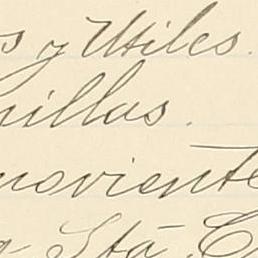 s y Utiles.
nillas.
moviente
Stá C